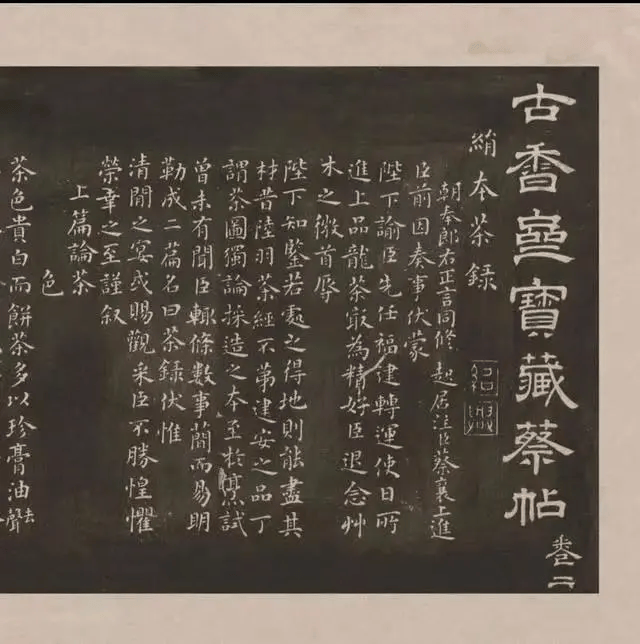 古香齋寶藏蔡帖
卷二
絹本茶録
朝奉郎右正言同修 起居注臣蔡襄上進
臣前因奏事伏蒙
陛下諭臣先任福建轉運使日所
進上品龍茶㝡為精好臣退念艸
木之微首辱
陛下知鑒若處之得地則能盡其
材昔陸羽茶經不第建安之品丁
謂茶圖獨論採造之本至於烹試
曾未有聞臣輒條數事簡而易明
勒成二篇名曰茶録伏惟
清閒之宴或賜觀采臣不勝惶懼
榮幸之至謹叙
上篇論茶
色
茶色貴白而餅茶多以珍膏油去聲